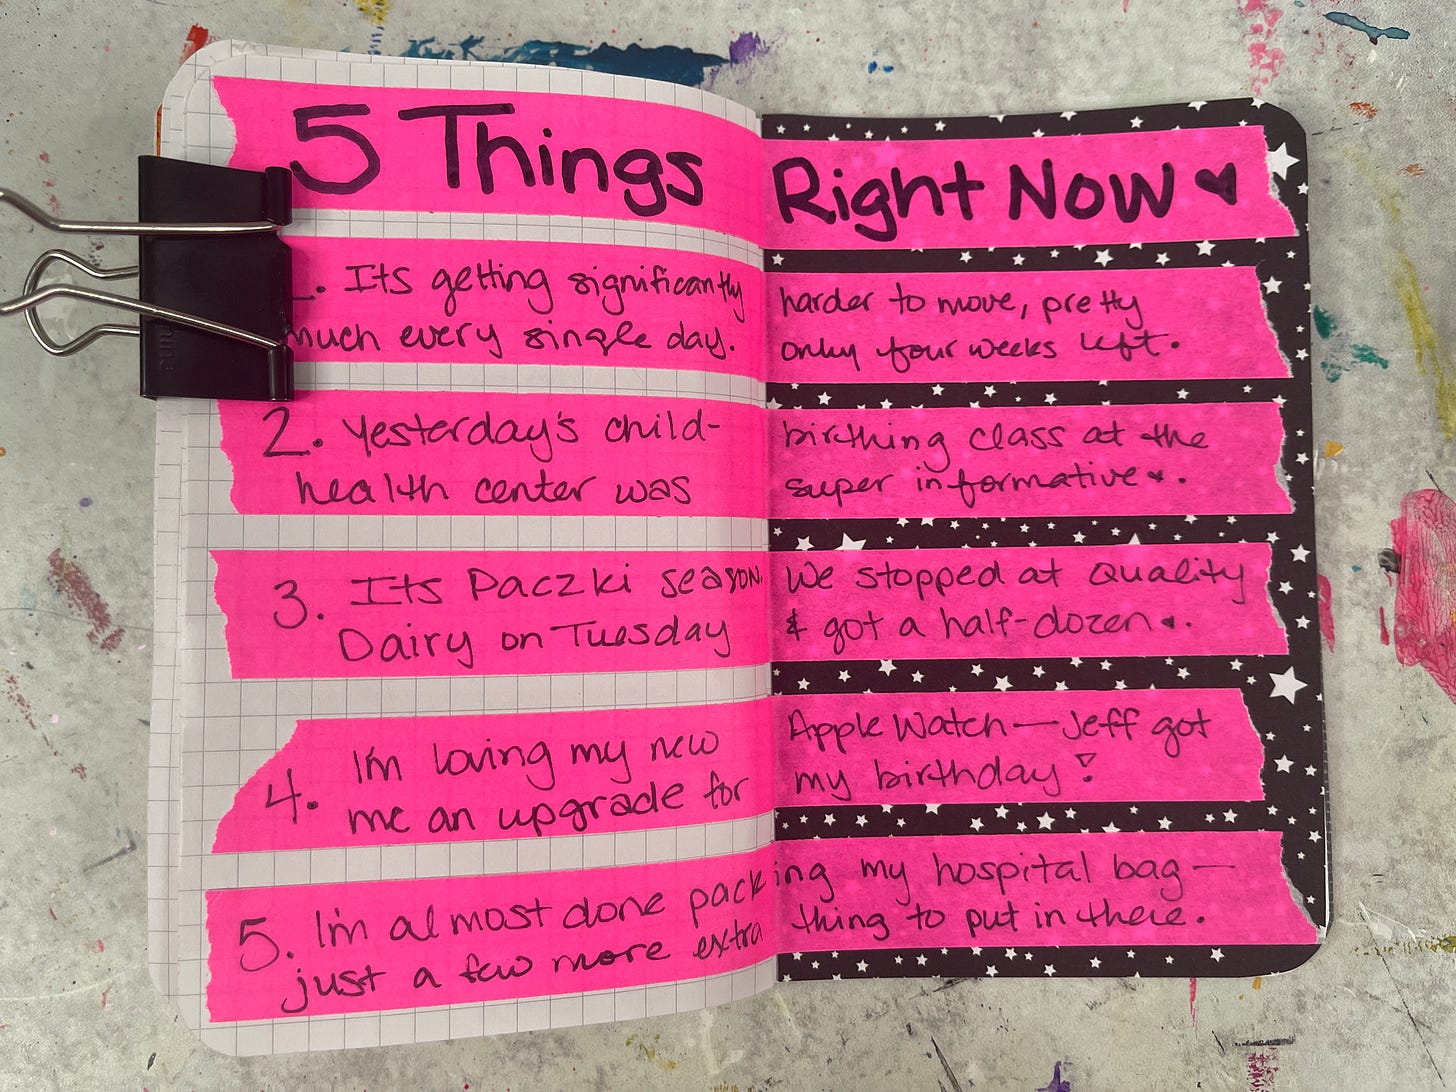 5 Things Right Now ♥
1. Its getting significantly harder to move, pretty
much every single day. only four weeks left.
2. Yesterday's child- birthing class at the
health center was super informative ♥.
3. Its Paczki season. We stopped at Quality
Dairy on Tuesday & got a half-dozen ♥.
4. I'm loving my new Apple Watch — Jeff got
me an upgrade for my birthday!
5. I'm almost done packing my hospital bag —
just a few more extra thing to put in there.